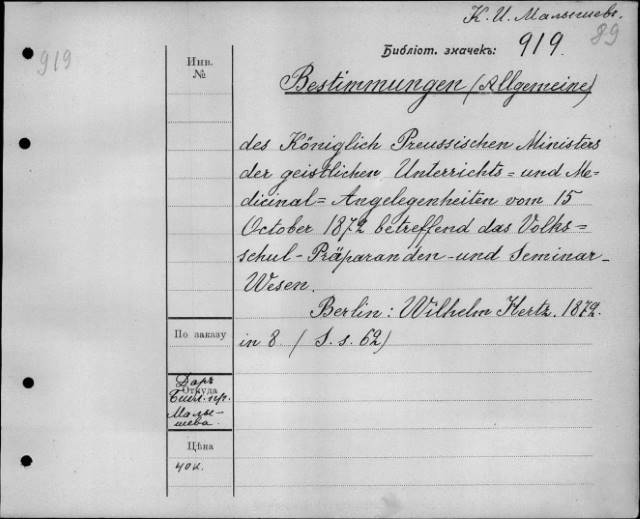 К. И. Малышевъ.
89
919
Библіот. значекъ: 919.
Инв.
№
Bestimmungen (Allgemeine)
des Königlich Preussischen Ministers
der geistlichen Unterrichts= und Me-
dicinal= Angelegenheiten vom 15
October 1872 betreffend das Volks=
schul- Präparanden- und Seminar-
Wesen.
Berlin: Wilhelm Hertz. 1872.
По заказу
in 8. ( S. s. 62)
Даръ
Откуда
Малы-
шева.
Цѣна
40 к.